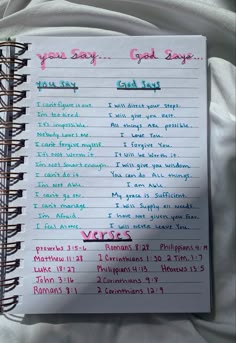 you Say... God Says...
You Say God Says
I cant figure it out I will direct your steps.
I'm too tired I will give you Rest.
It's impossible All things Are possible.
Nobody loves me. I Love You.
I cant forgive myself I Forgive You.
It's not worth it It will be Worth it.
I'm not smart enough I will give you wisdom
I can't do it You can do All things.
I'm not Able I am Able
I cant go on My grace is Sufficient.
I can't manage I will Supply all needs.
I'm Afraid I have not given you fear
I feel Alone I will never leave You.
Verses
proverbs 3:5-6 Romans 8:28 Philippians 4:19
Matthew 11:28 1 Corinthians 1:30 2 Tim 1:7
Luke 18:27 Philippians 4:13 Hebrews 13:5
John 3:16 2 Corinthians 9:8
Romans 8:1 2 Corinthians 12:9